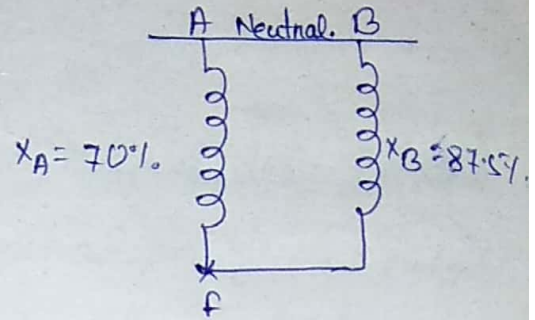 A Neutral. B
XA = 70%.
XB = 87.5%.
F